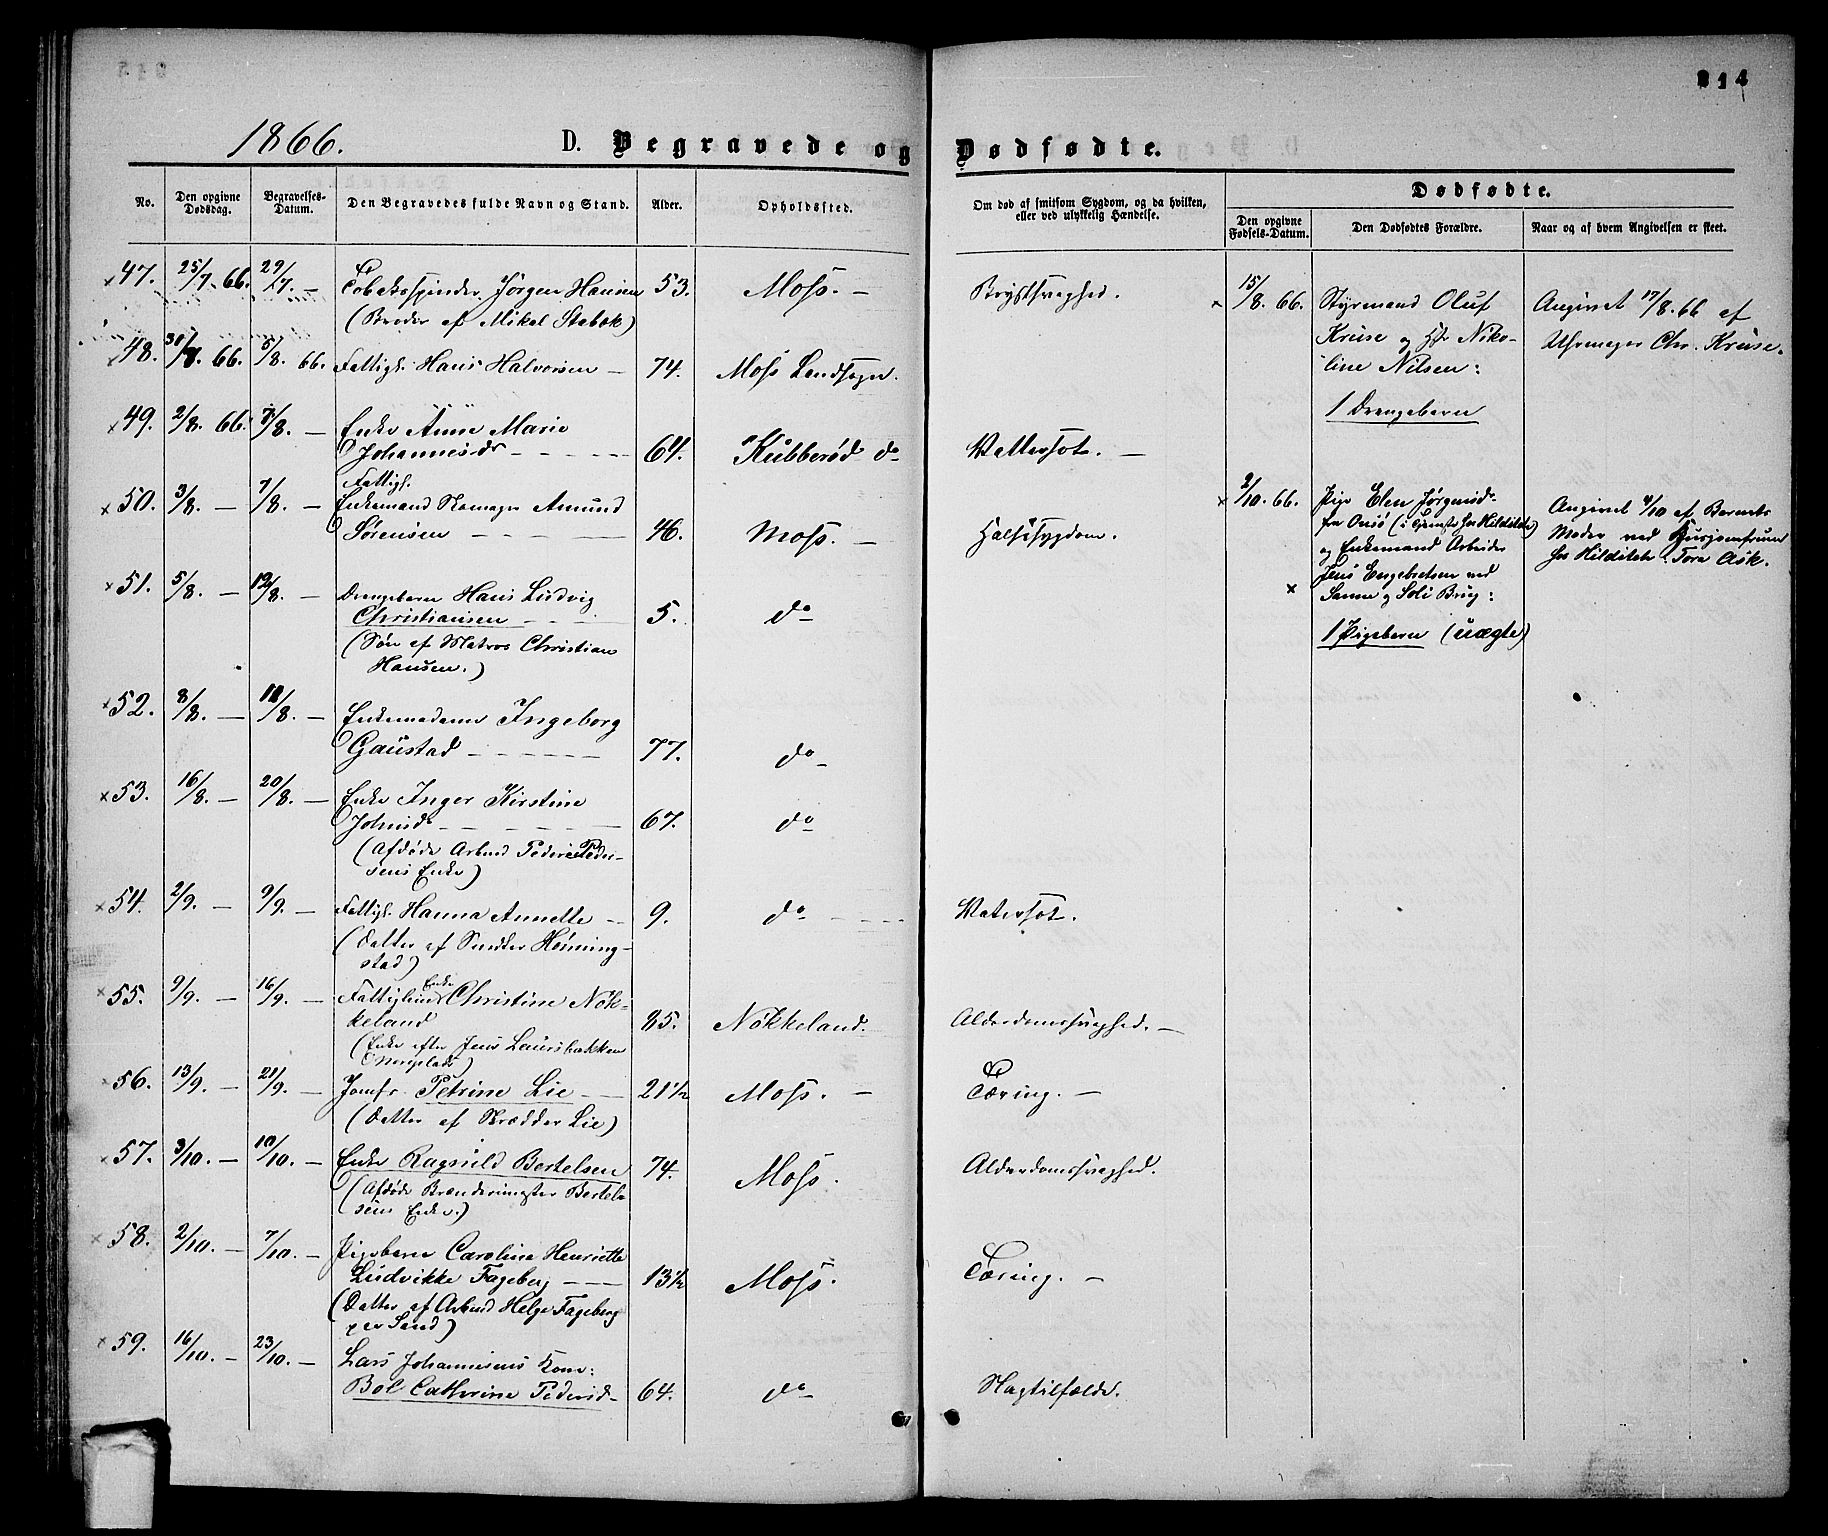 214
1866. D. Begravede og Dødfødte.
No. Den opgivne Dødsdag. Begravelses-Datum. Den Begravedes fulde Navn og Stand. Alder. Opholdssted. Om død af smitsom Sygdom, og da hvilken, eller ved ulykkelig Hændelse.
Dødfødte.
Den opgivne Fødsels-Datum. Den Dødfødtes Forældre. Naar og af hvem Angivelsen er skeet.
× 47. 25/7 66. 29/7. — Tobaksspinder Jørgen Hansen 53. Moss. — Brystsvaghed.
(Broder af Mikal Stabæk)
48. 31/7. 66. 5/8. 66. Fattigl. Hans Halvorsen — 74. Moss Landsogn.
× 49. 2/8. 66. 7/8. — Enke Anne Marie
Johannesdr - - - - - 64. Kubberød do Vattersot. —
Fattigl.
× 50. 3/8. — 7/8. — Enkemand Skomager Amund
Sørensen - - - - 46. Moss. — Halssygdom.
× 51. 5/8. — 12/8. — Drengebarn Hans Ludvig
Christiansen - - - 5. do
(Søn af Matros Christian
Hansen.)
× 52. 8/8. — 12/8. — Enkemadame Ingeborg
Gaustad - - - - - 77. do
× 53. 16/8. — 20/8. — Enke Inger Kirstine
Johnsdr - - - - - 67. do
(Afdøde Arbmd Peder Peder-
sens Enke)
× 54. 2/9. — 9/9. — Fattigl. Hanna Annette - - 9. do - - - Vatersot.
(Datter af Henning-
stad)
× 55. 9/9. — 16/9. — Fattiglem Enke Christine Nök-
keland 85. Nökkeland. Alderdomssvaghed. —
(Enke efter Jens Laursbakken
)
× 56. 13/9. — 21/9. — Jomfr. Petrine Lie - - 21 1/2 Moss. — Tæring. —
(Datter af Skrædder Lie)
× 57. 3/10. — 10/10. — Enke Ragnild Bertelsen 74. Moss. Alderdomssvaghed.
(Afdøde Brændevinsmester Bertel-
sens Enke.)
× 58. 2/10. — 7/10. — Pigebarn Carolina Henriette
Ludvikke Fageberg - - 13 1/2 Moss. Tæring. —
(Datter af Arbmd Helge Fageberg
paa Sand)
× 59. 16/10. — 23/10. — Lars Johannesens Kone:
Bol Catherine Pedersd- 64. do Slagtilfælde.
× 15/8. 66. Styrmand Oluf
Kruse og H. Niko-
line Nilsen:
1 Drengebarn
Angivet 17/8. 66 af
Uhrmager Chr. Kruse.
× 2/10. 66. Pige Elen Jørgensdr
fra Onsö (i Tjeneste hos Hilditch)
og Enkemand Arbeider
Jens Engebretsen ved
× Sanne og Soli Brug:
1 Pigebarn (uægte)
Angivet 4/10 af Barnets
Moder ved
hos Hilditch Tora Ask.